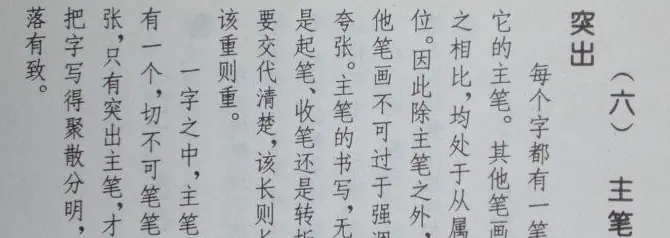 （六） 主笔
突出
每个字都有一笔
它的主笔。其他笔画
之相比，均处于从属
位。因此除主笔之外，
他笔画不可过于强调
夸张。主笔的书写，无
是起笔、收笔还是转折
要交代清楚，该长则长
该重则重。
一字之中，主笔
有一个，切不可笔笔
张，只有突出主笔，才
把字写得聚散分明，
落有致。